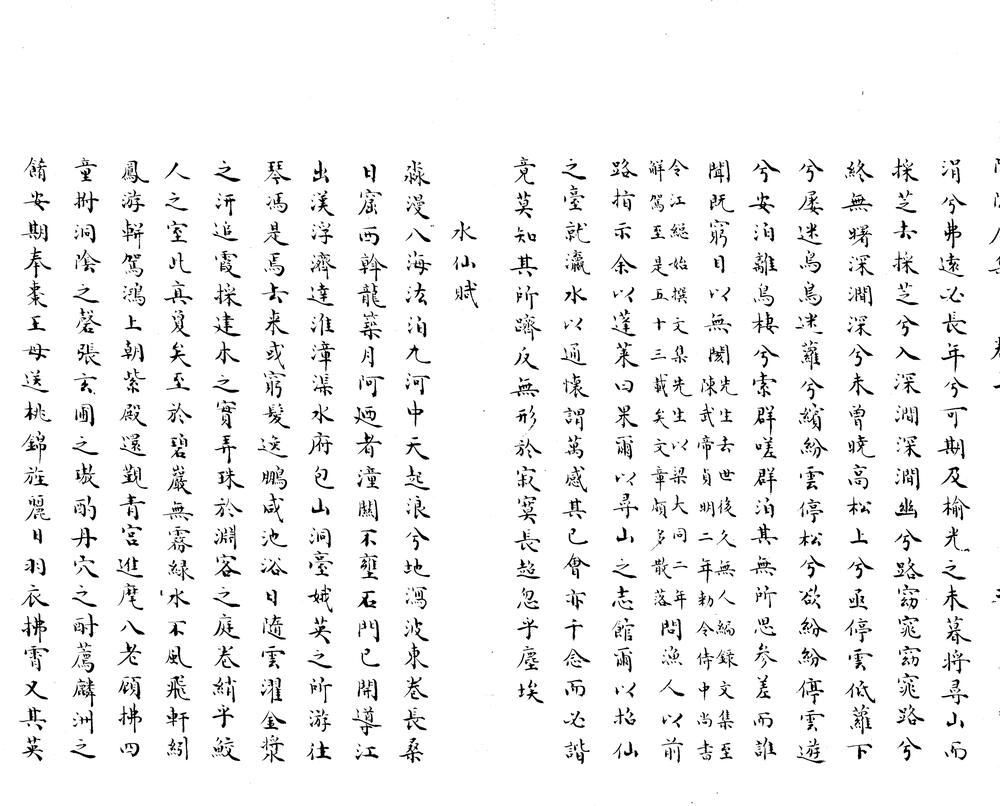 涓兮弗遠必長年兮可期及榆光之未暮將尋山而
採芝去採芝兮入深澗深澗幽兮路窈窕窈窕路兮
終無曙深澗深兮未曾曉高松上兮亟停雲低蘿下
兮屢迷鳥鳥迷蘿兮繽紛雲停松兮欲紛紛停雲遊
兮安泊離鳥棲兮索群嗟群泊其無所思參差而誰
聞既窮日以無閡先生去世後久無人編録文集至陳武帝貞明二年勅令侍中尚書
令江總始撰文集先生以梁大同二年解駕至是五十三載矣文章頗多散落問漁人以前
路指示余以蓬萊曰果爾以尋山之志館爾以招仙
之臺就瀛水以通懷謂萬感其已會亦千念而必諧
竟莫知其所躋反無形於寂寞長超忽乎塵埃
水仙賦
淼漫八海汯泊九河中天起浪兮地瀉波東卷長桑
日窟西斡龍築月阿廼者潼關不壅石門已開導江
出漢浮濟達淮漳渠水府包山洞臺娥英之所游往
琴馮是焉去来或窮髮送鵬咸池浴日隨雲濯金漿
之汧追霞採建木之實弄珠於淵客之庭卷綃乎鮫
人之室此真夐矣至於碧巖無霧緑水不風飛軒紉
鳳游軿駕鴻上朝紫殿還觐青宮進麾八老顧拂四
童拊洞陰之磬張玄圃之璈酌丹穴之酎薦麟洲之
餚安期奉棗王母送桃錦旌麗日羽衣拂霄又其英